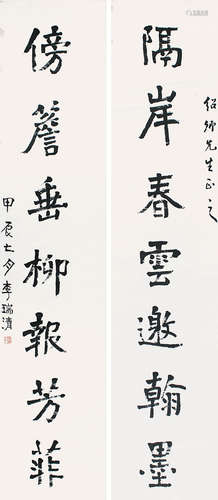 紹卿先生正之
隔岸春雲邀翰墨
傍簷垂柳報芳菲
甲辰七月李瑞清